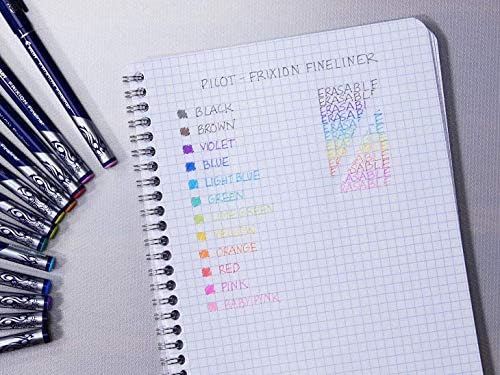 PILOT - FRIXION FINELINER
BLACK
BROWN
VIOLET
BLUE
LIGHT BLUE
GREEN
LIME GREEN
YELLOW
ORANGE
RED
PINK
BABY PINK
ERASABLE
ERASABLE
ERASABL
ERASAB
ERASABLE
ERASABLE